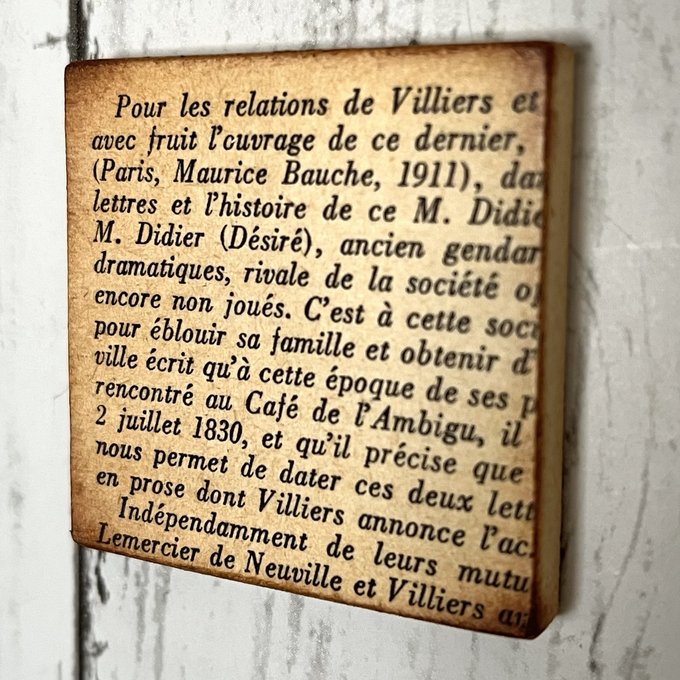 Pour les relations de Villiers et
avec fruit l'ouvrage de ce dernier,
(Paris, Maurice Bauche, 1911),
lettres et l'histoire de ce M.
M. Didier (Désiré), ancien
dramatiques, rivale de la société
encore non joués. C'est à cette
pour éblouir sa famille et obtenir
ville écrit qu'à cette époque de ses
rencontré au Café de l'Ambigu, il
2 juillet 1830, et qu'il précise que
nous permet de dater ces deux
en prose dont Villiers annonce
Indépendamment de leurs
Lemercier de Neuville et Villiers